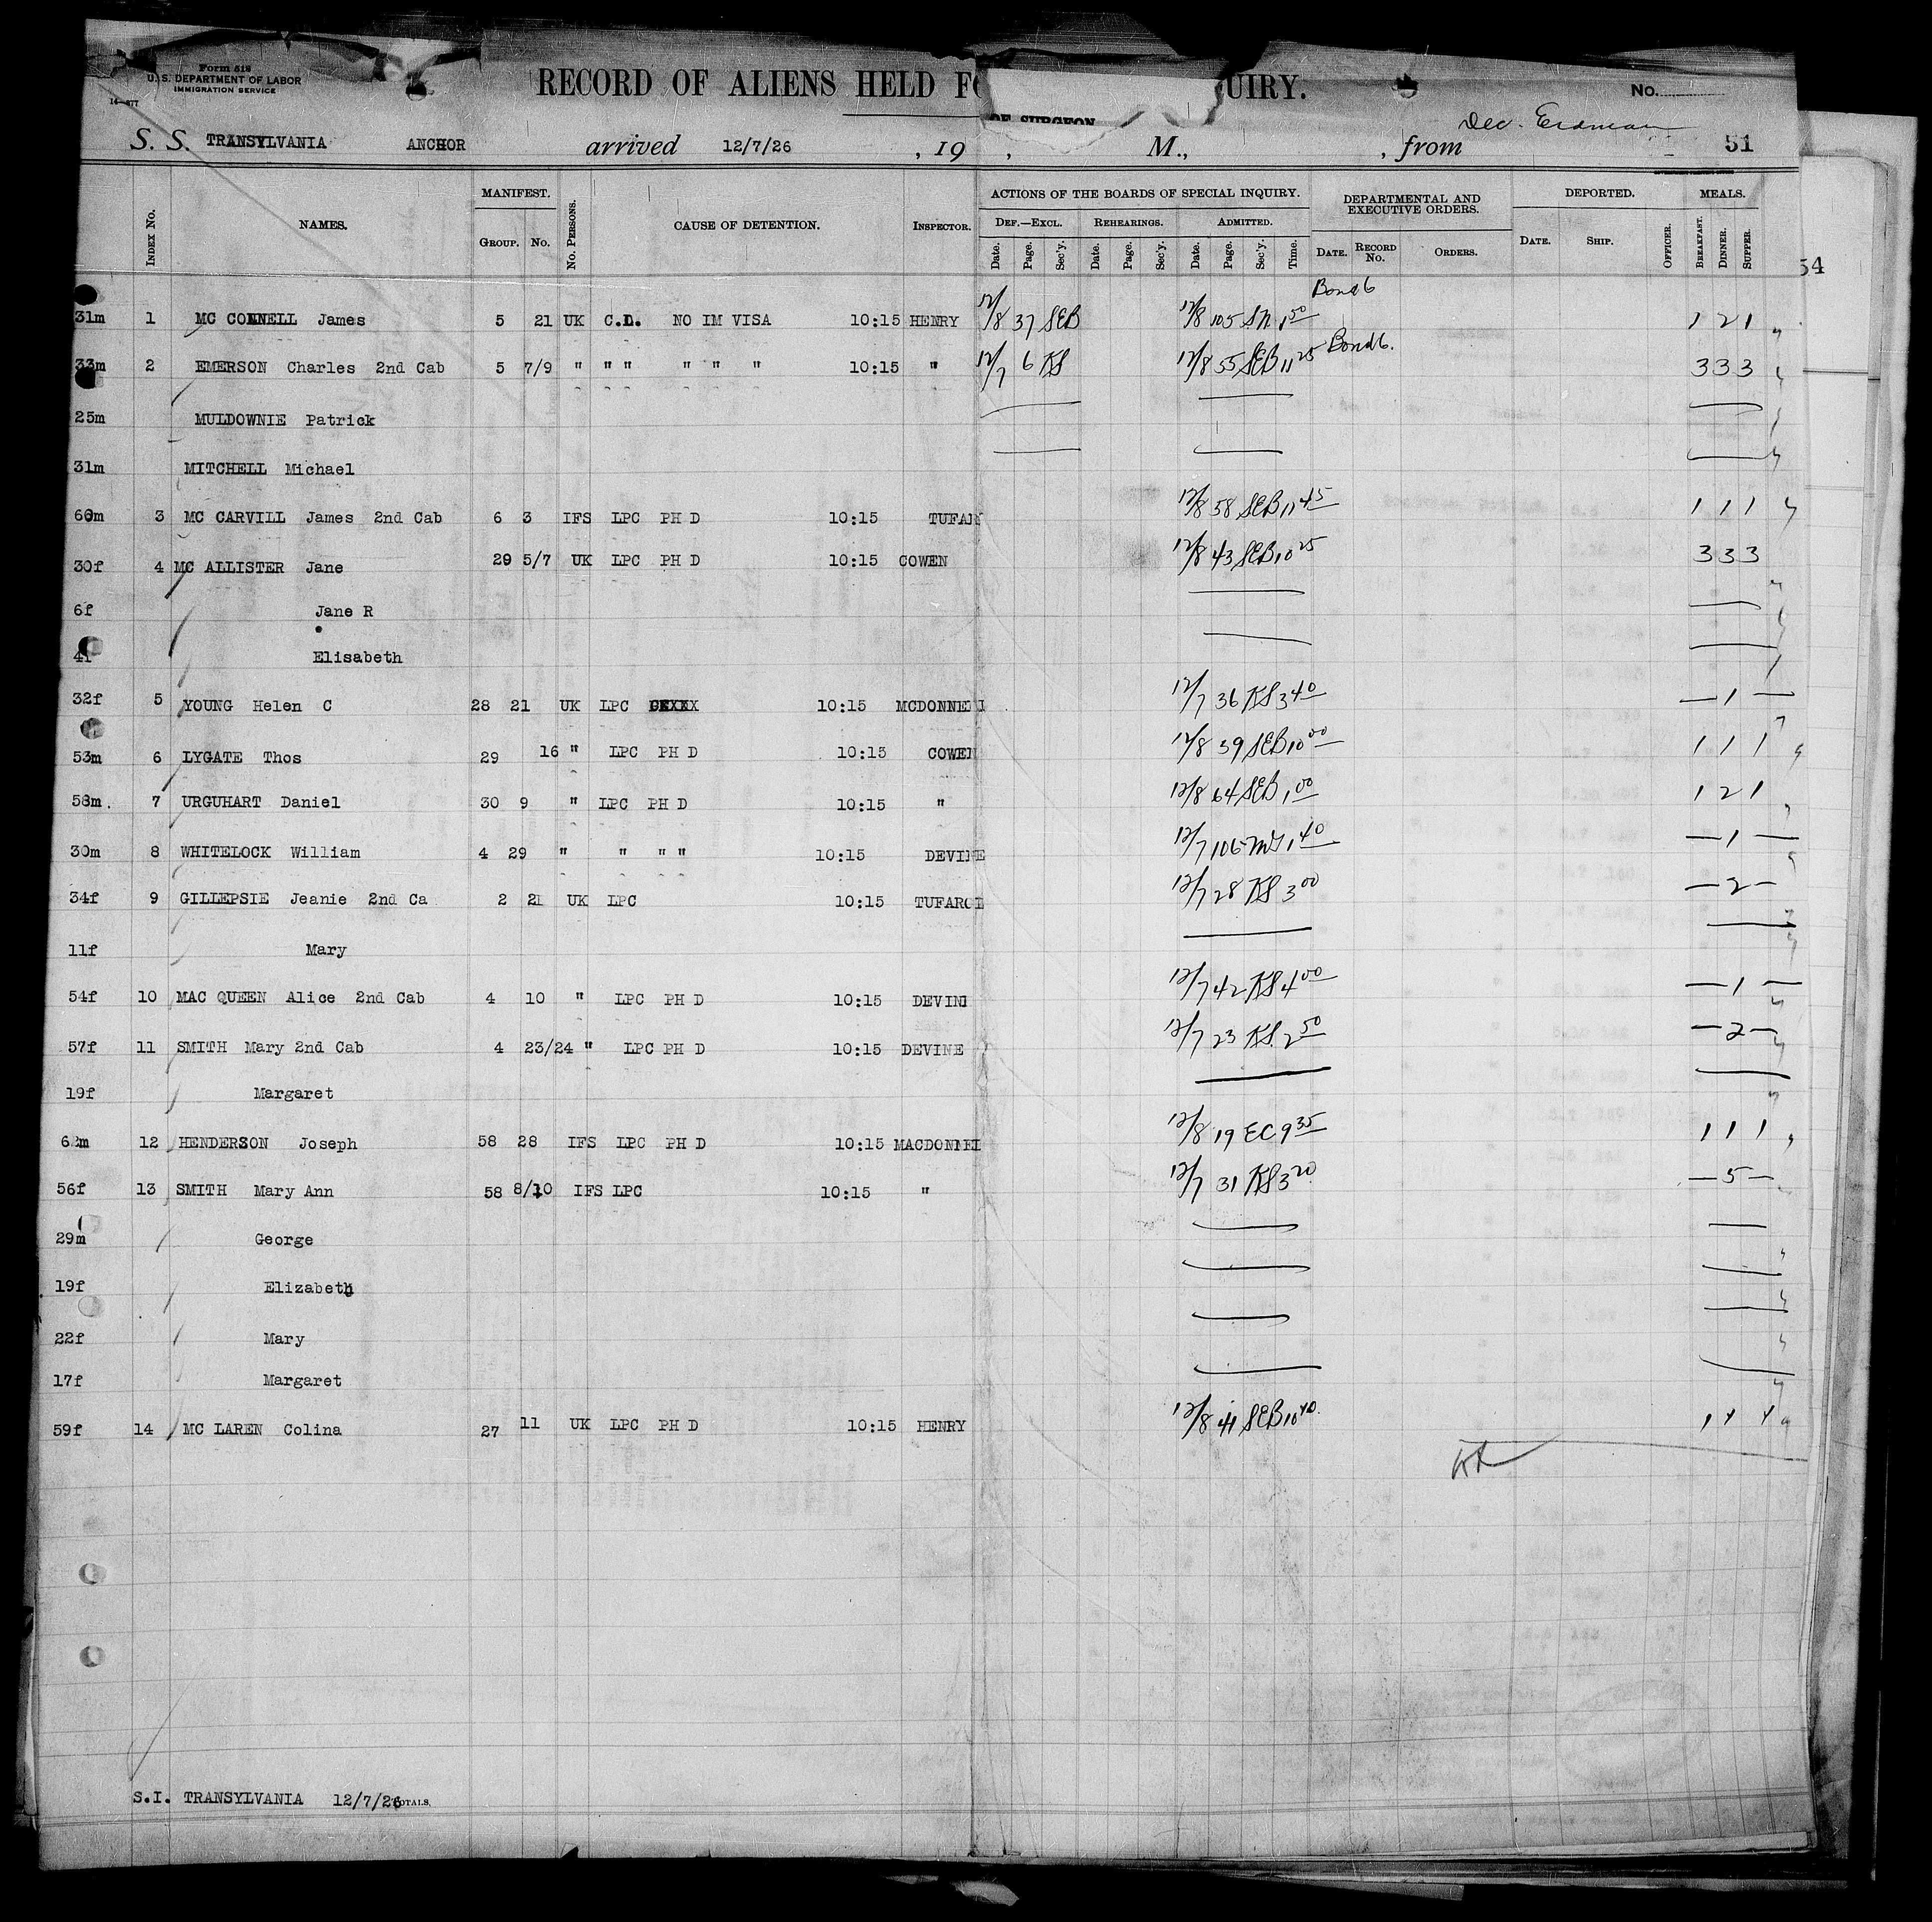 Form 518
U. S. DEPARTMENT OF LABOR
IMMIGRATION SERVICE
14—877
RECORD OF ALIENS HELD FO UIRY.
No.
OF SURGEON
Dec. Erdman
S. S. TRANSYLVANIA ANCHOR arrived 12/7/26 , 19 , M., , from 51
INDEX No. NAMES. MANIFEST. GROUP. No. No. PERSONS. CAUSE OF DETENTION. INSPECTOR. ACTIONS OF THE BOARDS OF SPECIAL INQUIRY. DEF.—EXCL. Date. Page. Sec'y. REHEARINGS. Date. Page. Sec'y. ADMITTED. Date. Page. Sec'y. Time. DEPARTMENTAL AND EXECUTIVE ORDERS. DATE. RECORD No. ORDERS. DEPORTED. DATE. SHIP. OFFICER. MEALS. BREAKFAST. DINNER. SUPPER.
54
31m 1 MC CONNELL James 5 21 UK C.D. NO IM VISA 10:15 HENRY 12/8 37 SEB 12/8 105 SN 1 50 Bond 6 1 2 1
33m 2 EMERSON Charles 2nd Cab 5 7/9 " " " " " " 10:15 " 12/7 6 KS 12/8 55 SEB 11 25 Bond 6. 3 3 3
25m MULDOWNIE Patrick
31m MITCHELL Michael
60m 3 MC CARVILL James 2nd Cab 6 3 IFS LPC PH D 10:15 TUFAR 12/8 58 SEB 11 45 1 1 1
30f 4 MC ALLISTER Jane 29 5/7 UK LPC PH D 10:15 COWEN 12/8 43 SEB 10 25 3 3 3
6f Jane R
4f Elisabeth
32f 5 YOUNG Helen C 28 21 UK LPC 10:15 MCDONNELL 12/7 36 KS 3 40 — 1 —
53m 6 LYGATE Thos 29 16 " LPC PH D 10:15 COWEN 12/8 39 SEB 10 00 1 1 1
58m. 7 URGUHART Daniel 30 9 " LPC PH D 10:15 " 12/8 64 SEB 1 00 1 2 1
30m 8 WHITELOCK William 4 29 " " " " 10:15 DEVINE 12/7 106 1 40 — 1 —
34f 9 GILLEPSIE Jeanie 2nd Ca 2 21 UK LPC 10:15 TUFARO 12/7 28 KS 3 00 — 2 —
11f Mary
54f 10 MAC QUEEN Alice 2nd Cab 4 10 " LPC PH D 10:15 DEVINE 12/7 42 KS 4 00 — 1 —
57f 11 SMITH Mary 2nd Cab 4 23/24 " LPC PH D 10:15 DEVINE 12/7 23 KS. 2 50 — 2 —
19f Margaret
62m 12 HENDERSON Joseph 58 28 IFS LPC PH D 10:15 MACDONNEL 12/8 19 EC 9 35 1 1 1
56f 13 SMITH Mary Ann 58 8/10 IFS LPC 10:15 " 12/7 31 KS 3 20 — 5 —
29m George
19f Elizabeth
22f Mary
17f Margaret
59f 14 MC LAREN Colina 27 11 UK LPC PH D 10:15 HENRY 12/8 41 SEB 10 40
S.I. TRANSYLVANIA 12/7/26 TOTALS.